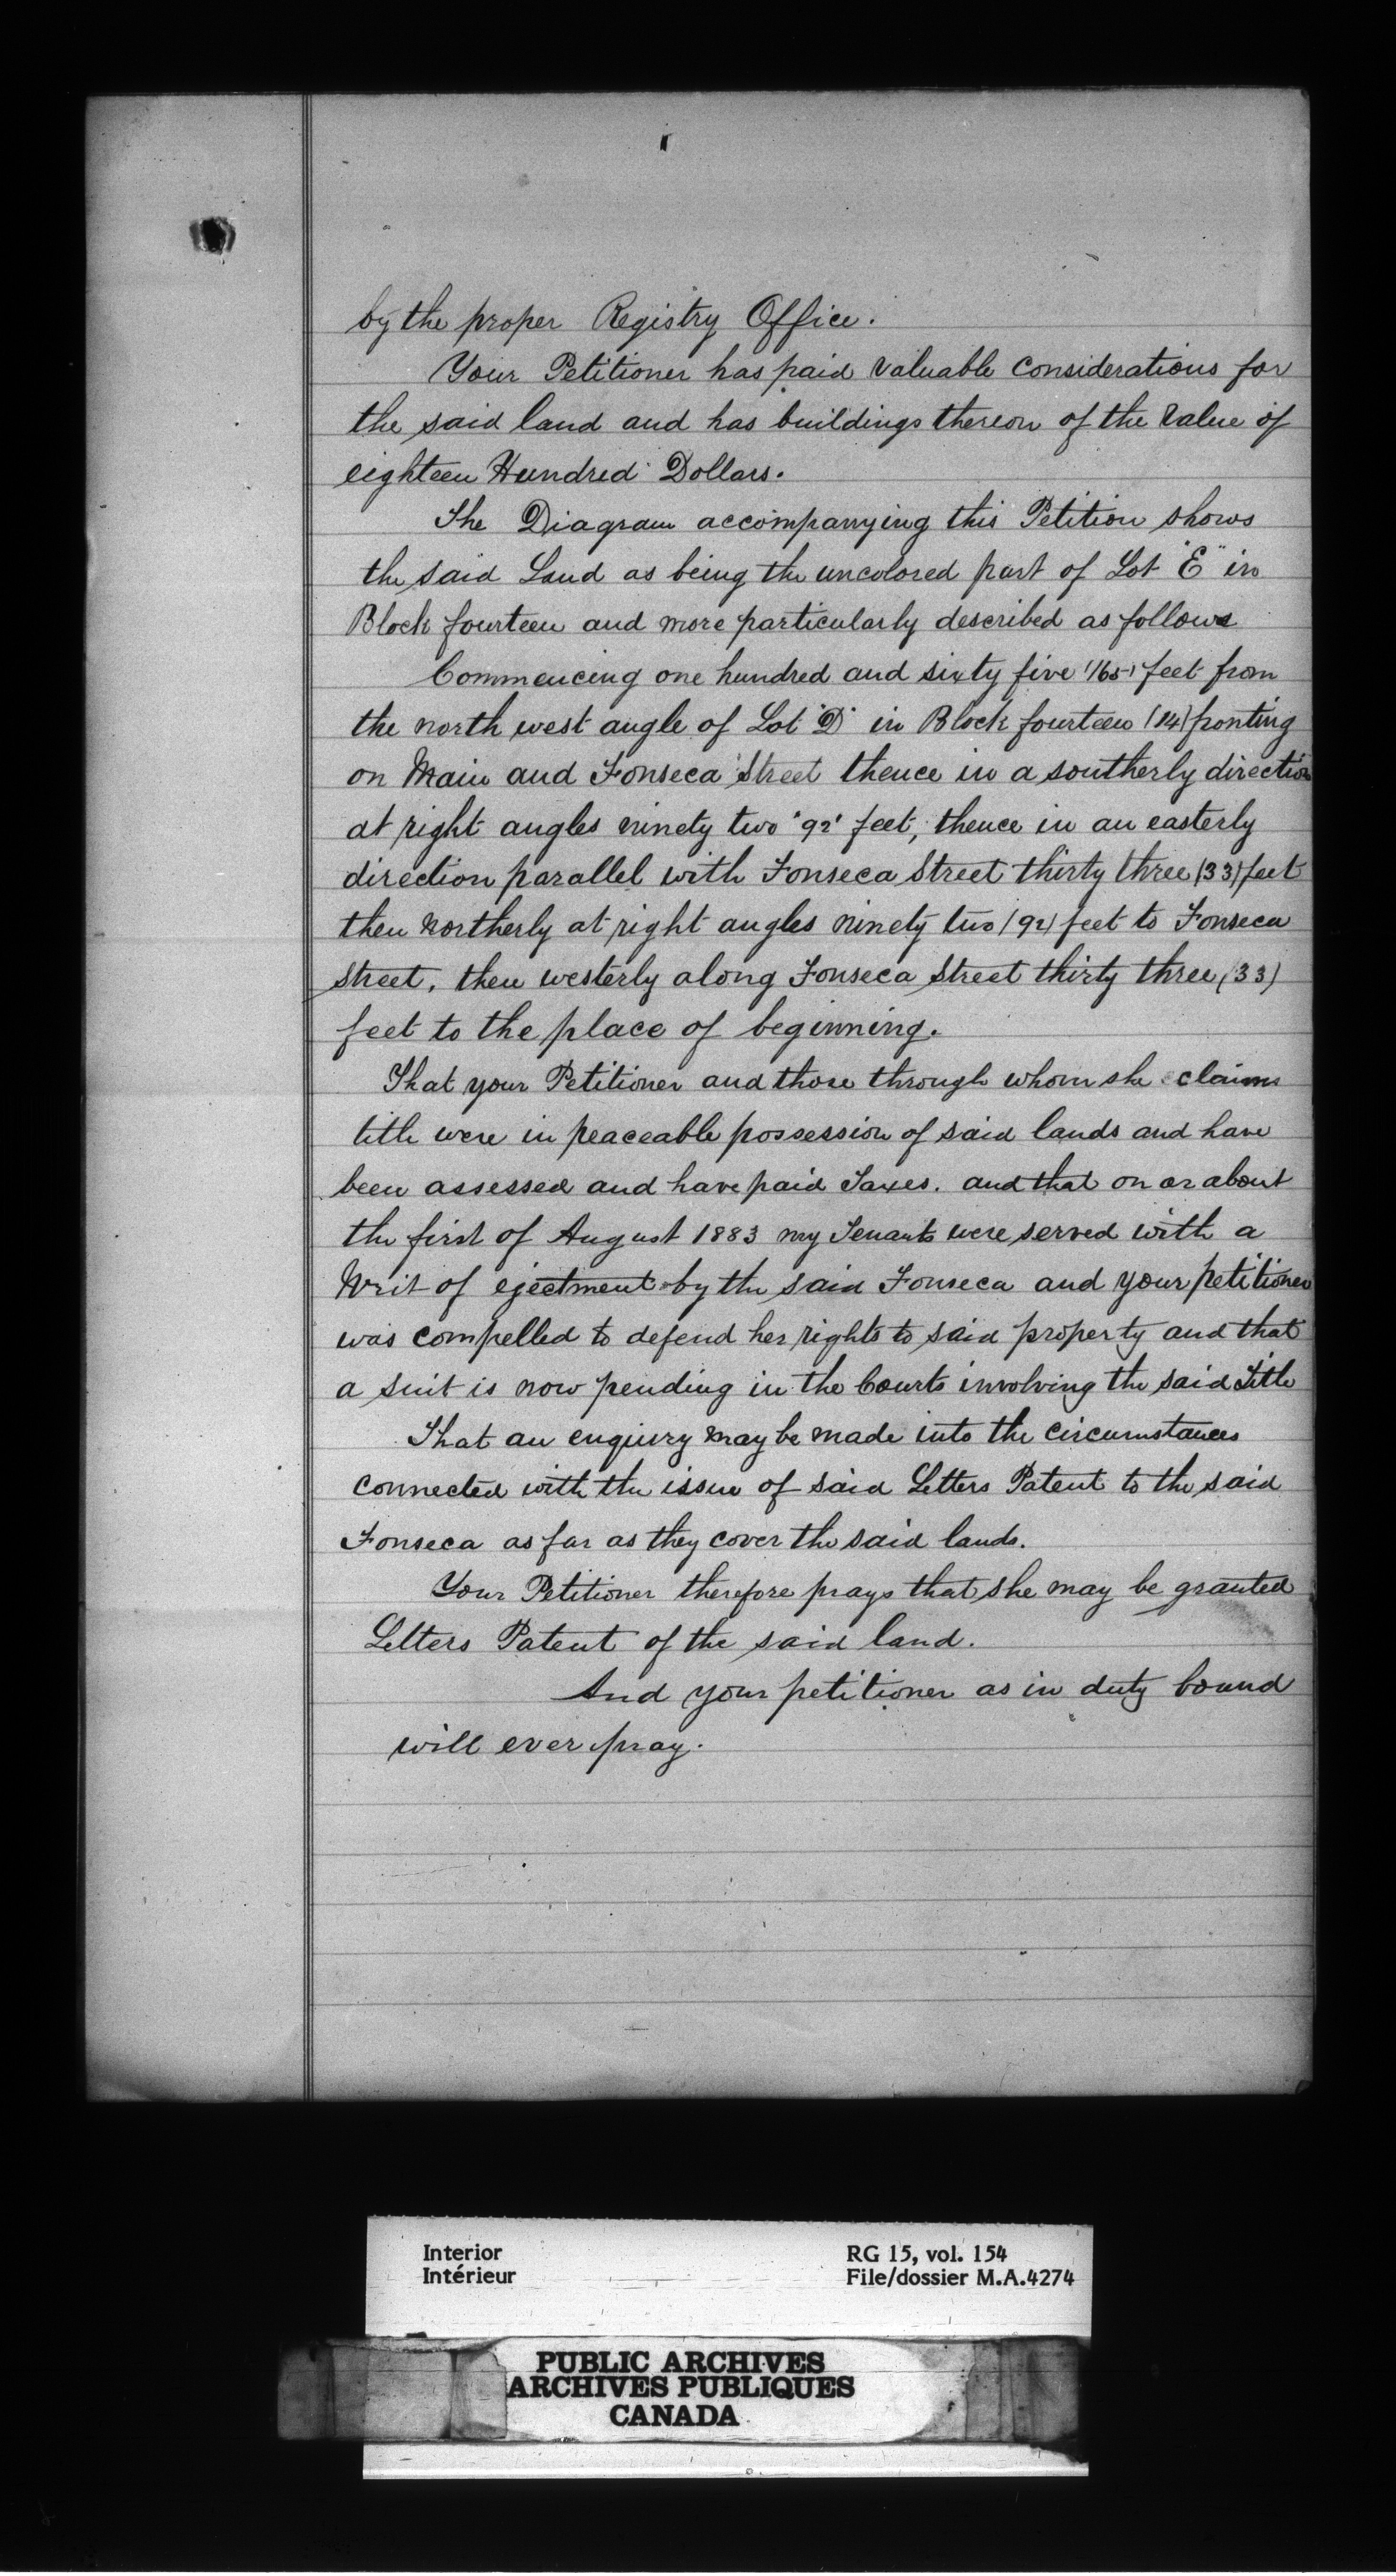 by the proper Registry Office.
Your Petitioner has paid valuable considerations for
the said land and has buildings thereon of the value of
eighteen Hundred Dollars.
The Diagram accompanying this Petition shows
the said Land as being the uncolored part of Lot "E" in
Block fourteen and more particularly described as follows
Commencing one hundred and sixty five (165) feet from
the north west angle of Lot "D" in Block fourteen (14) fronting
on Main and Fonseca Street thence in a southerly direction
at right angles ninety two "92" feet, thence in an easterly
direction parallel with Fonseca Street thirty three (33) feet
then northerly at right angles ninety two (92) feet to Fonseca
Street, then westerly along Fonseca Street thirty three (33)
feet to the place of beginning.
That your Petitioner and those through whom she claims
title were in peaceable possession of said lands and have
been assessed and have paid Taxes. and that on or about
the first of August 1883 my Tenants were served with a
Writ of ejectment by the said Fonseca and your petitioner
was compelled to defend her rights to said property and that
a suit is now pending in the Courts involving the said Title
That an enquiry may be made into the circumstances
connected with the issue of said Letters Patent to the said
Fonseca as far as they cover the said lands.
Your Petitioner therefore prays that she may be granted
Letters Patent of the said land.
And your petitioner as in duty bound
will ever pray.
Interior
Intérieur
RG 15, vol. 154
File/dossier M.A.4274
PUBLIC ARCHIVES
ARCHIVES PUBLIQUES
CANADA